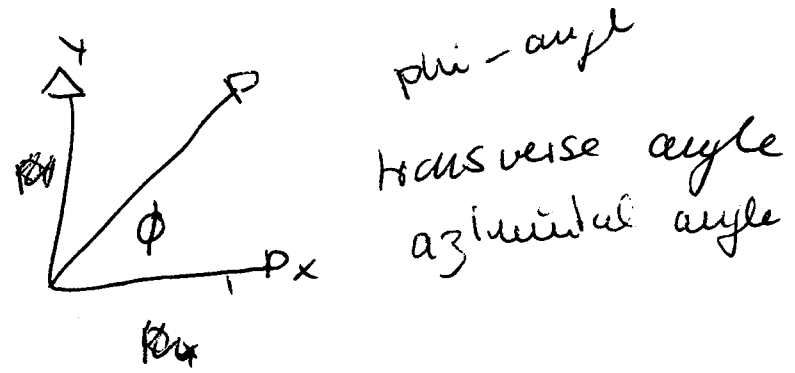 Y
phi - angle
ϕ
transverse angle
azimutal angle
X